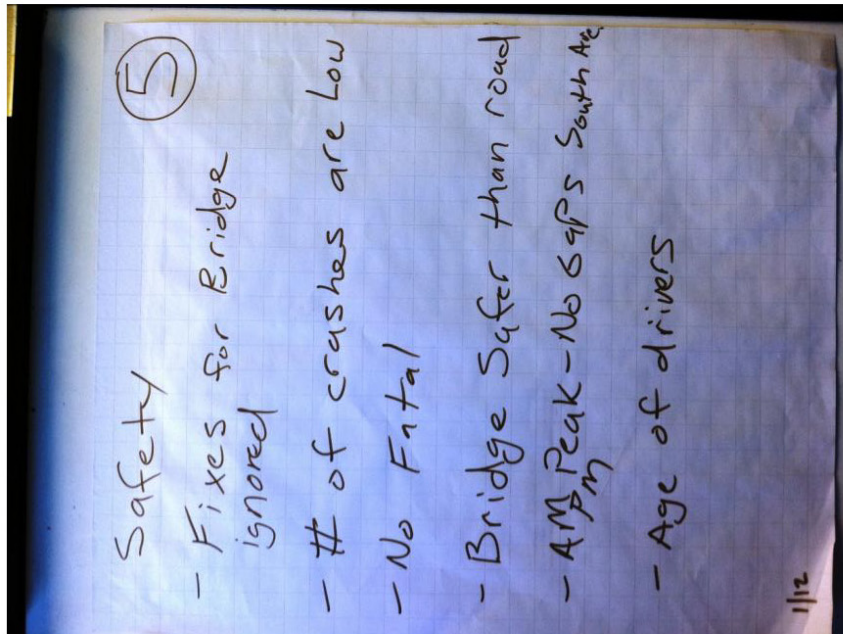 5
Safety
- Fixes for Bridge
ignored
- # of crashes are Low
- No Fatal
- Bridge Safer than road
- AM Peak - No Gaps South Ave
PM
- Age of drivers
1/12